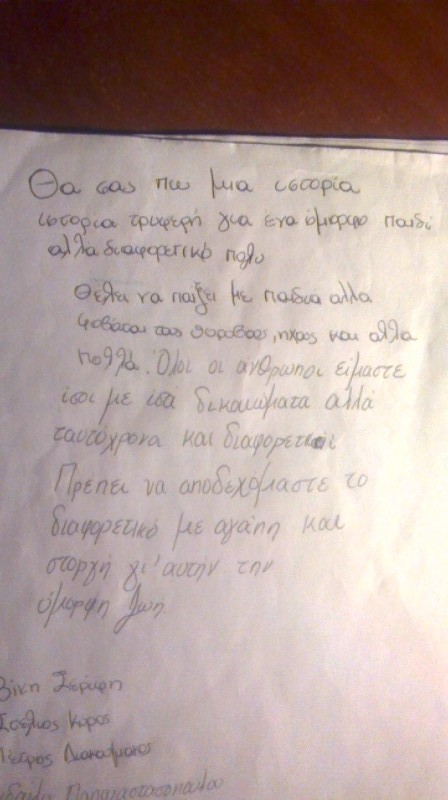 Θα σας πω μια ιστορία
ιστορια τρυφερή για ένα όμορφο παιδί
αλλα διαφορετικό πολυ
Θέλει να παίξει με παιδιά αλλα
φοβάται τους θορυβους, ηχους και αλλα
πολλά. Όλοι οι άνθρωποι είμαστε
ίσοι με ισά δικαιώματα αλλά
ταυτόχρονα και διαφορετικοί
Πρέπει να αποδεχόμαστε το
διαφορετικό με αγάπη και
στοργή γι' αυτήν την
όμορφη ζωή
Βίκη
Στέλιος Κύρος
Πέτρος
Παπαναστασοπούλου